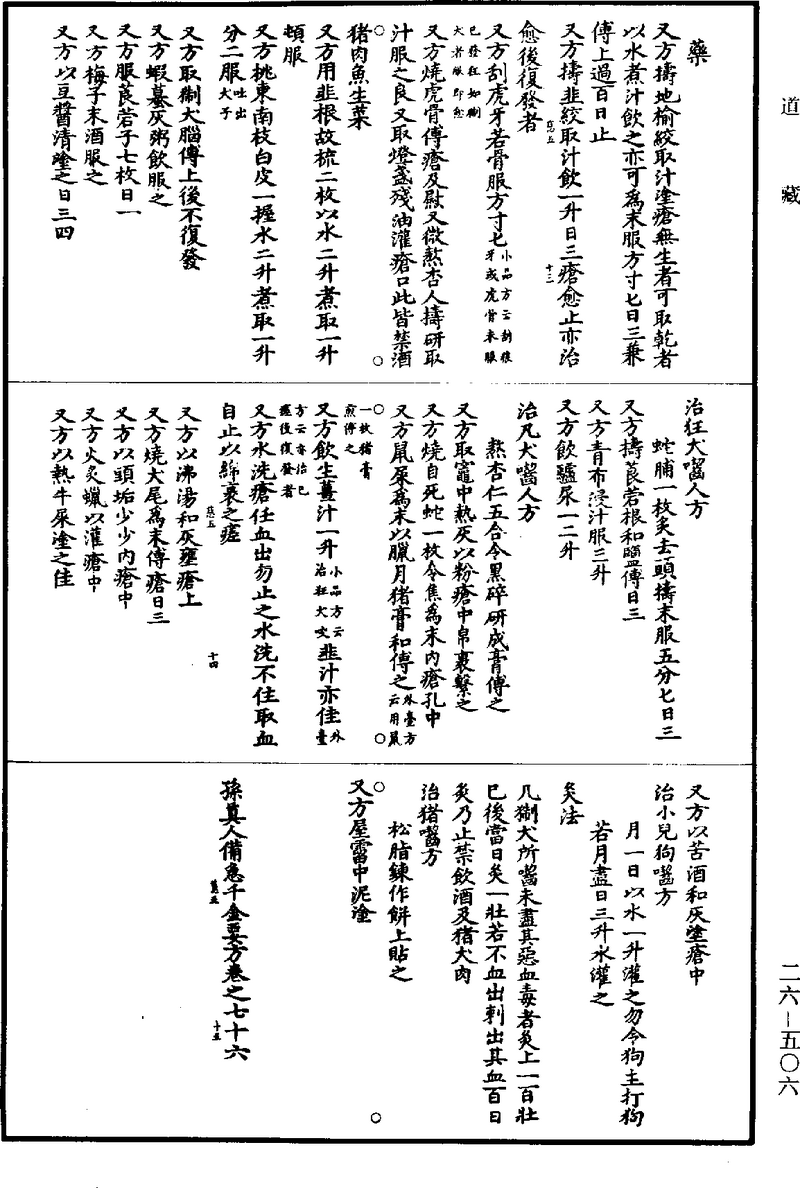 道藏
藥
又方擣地榆絞取汁塗瘡無生者可取乾者
以水煮汁飲之亦可為末服方寸七日三兼
傅上過百日止
又方擣韭絞取汁飲一升日三瘡愈止亦治
愈後復發者
又方刮虎牙若骨服方寸匕小品方云刮狼牙或虎骨末服已發狂如猘犬者服即愈
又方燒虎骨傅瘡及熨又微熬杏人擣研取
汁服之良又取燈盞殘油灌瘡口此皆禁酒
猪肉魚生菜
又方用韭根故梳二枚以水二升煮取一升
頓服
又方桃東南枝白皮一握水二升煮取一升
分二服吐出犬子
又方取猘犬腦傅上後不復發
又方蝦蟇灰粥飲服之
又方服莨菪子七枚日一
又方梅子末酒服之
又方以豆醬清塗之日三四
治狂犬嚙人方
蛇脯一枚炙去頭擣末服五分匕日三
又方擣莨菪根和鹽傅日三
又方青布浸汁服三升
又方飲驢尿一二升
治凡犬嚙人方
熬杏仁五合令黑碎研成膏傅之
又方取竈中熱灰以粉瘡中帛裹繫之
又方燒自死蛇一枚令焦為末內瘡孔中
又方鼠屎為末以臘月猪膏和傅之外臺方云用鼠一枚猪膏煎傅之
又方飲生薑汁一升小品方云治狂犬咬韭汁亦佳外臺方云亦治已瘥後復發者
又方水洗瘡任血出勿止之水洗不住取血
自止以綿裹之瘥
又方以沸湯和灰壅瘡上
又方燒犬尾為末傅瘡日三
又方以頭垢少少內瘡中
又方火炙蠟以灌瘡中
又方以熱牛屎塗之佳
又方以苦酒和灰塗瘡中
治小兒狗嚙方
月一日以水一升灌之勿令狗主打狗
若月盡日三升水灌之
灸法
凡猘犬所嚙未盡其惡血毒者灸上一百壯
已後當日灸一壯若不血出刺出其血百日
灸乃止禁飲酒及猪犬肉
治猪嚙方
松脂鍊作餅上貼之
又方屋霤中泥塗
孫真人備急千金要方卷之七十六
二六—五〇六